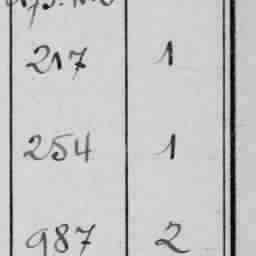 217 1
254 1
987 2